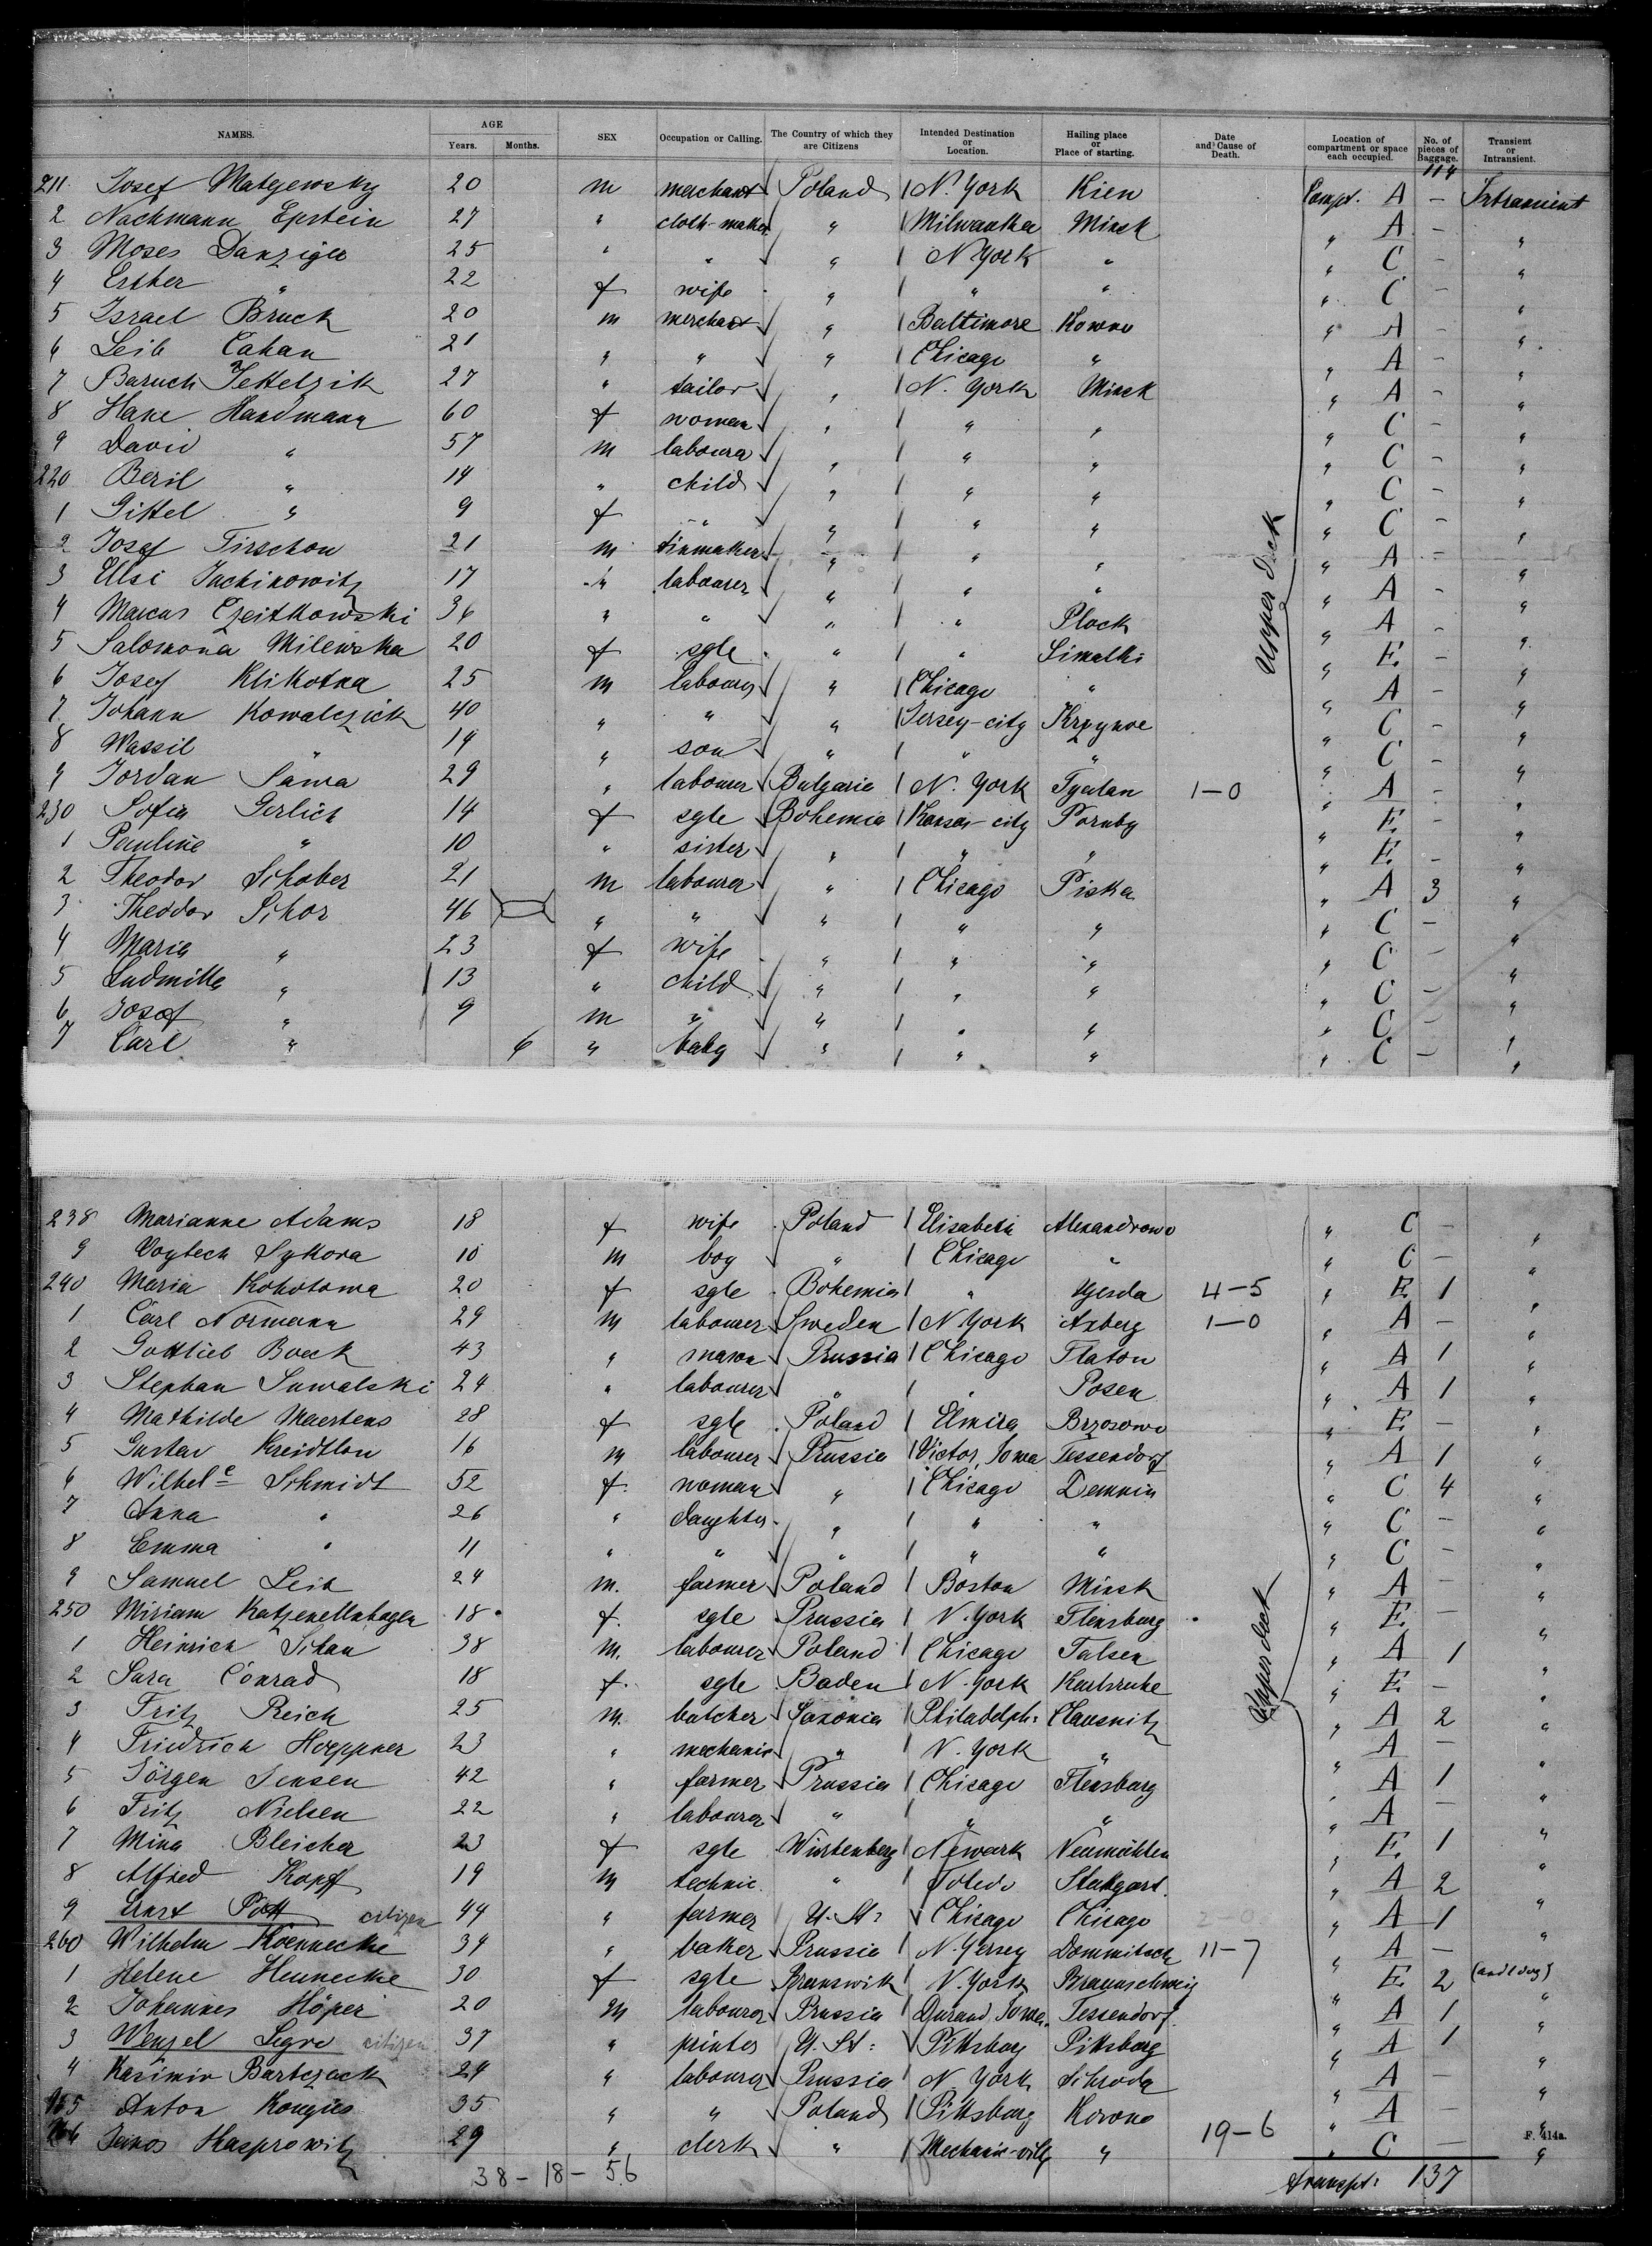 NAMES. AGE Years. Months. SEX Occupation or Calling. The Country of which they are Citizens Intended Destination or Location. Hailing place or Place of starting. Date and Cause of Death. Location of compartment or space each occupied. No. of pieces of Baggage. Transient or Intransient.
114
211 Josef Matzewsky 20 m merchant Poland N. York Kien Compt. A - Intransient
2 Nachmann Epstein 27 " cloth-maker " Milwaukee Minsk " A - "
3 Moses Danziger 25 " " " N York " " C - "
4 Esther " 22 f wife " " " " C - "
5 Israel Bruck 20 m merchant " Baltimore Kowno " A - "
6 Leib Cahan 21 " " " Chicago " " A - "
7 Baruch 27 " tailor " N. York Minsk " A - "
8 Hane Handmann 60 f woman " " " " C - "
9 David " 57 m labourer " " " " C - "
220 Beril " 14 " child " " " " C - "
1 Gittel " 9 f " " " " " C - "
2 Josef Tirschon 21 m tinmaker " " " " A - "
3 Elsi Jachikowitz 17 " labourer " " " " A - "
4 Marcus Czeitkowski 36 " " " " Plock " A - "
5 Salomona Milewska 20 f sgle " " Simalki " E. - "
6 Josef Klikotka 25 m labourer " Chicago " " A - "
7 Johann Kowalczick 40 " " " Jersey-city Krzynoe " C - "
8 Wassil " 14 " son " " " " C - "
9 Jordan Sawa 29 " labourer Bulgarie N. York 1-0 " A - "
230 Sofia Gerlich 14 f sgle Bohemia Kansas-city Pornby " E. - "
1 Pauline " 10 " sister " " " " E. - "
2 Theodor Schober 21 m labourer " Chicago Piska " A 3 "
3 Theodor Schor 46 " " " " " " C - "
4 Maria " 23 f wife " " " " C - "
5 Ludmilla " 13 " child " " " " C - "
6 Josef " 9 m " " " " " C - "
7 Carl " 6 " baby " " " " C - "
Upper deck
238 Marianne Adams 18 f wife Poland Elisabeth Alexandrowo " C - "
9 Voytech Sykora 10 m boy " Chicago " " C - "
240 Maria Kohotowa 20 f sgle Bohemia " Ugesda 4-5 " E. 1 "
1 Carl Normann 29 m labourer Sweden N. York Axberg 1-0 " A - "
2 Gottlieb Boeck 43 " mason Prussia Chicago Flatow " A 1 "
3 Stephan Suwalski 24 " labourer " " Posen " A 1 "
4 Mathilde Maertens 28 f sgle Poland Elmira Brzosowo " E. - "
5 Gustav Kreidllon 16 m labourer Prussia Victor, Iowa Tessendorf " A 1 "
6 Wilhel e Schmidt 52 f. woman " Chicago Demmin " C 4 "
7 Anna " 26 " daughter " " " " C - "
8 Emma " 11 " " " " " " C - "
9 Samuel Leib 24 m. farmer Poland Boston Minsk " A - "
250 Miriam Katzenellnbogen 18 f. sgle Prussia N. York Flensburg " E. - "
1 Heinrich Schan 38 m. labourer Poland Chicago Talsen " A 1 "
2 Sara Conrad 18 f. sgle Baden N. York Karlsruhe " E. - "
3 Fritz Reich 25 m. butcher Saxonia Philadelph: Clausnitz " A 2 "
4 Friedrich Hoeppner 23 " mechanic " N. York " " A - "
5 Jörgen Jensen 42 " farmer Prussia Chicago Flensburg " A 1 "
6 Fritz Nielsen 22 " labourer " " " " A - "
7 Mina Bleicher 23 f sgle Würtenberg Newark Neumühlen " E. 1 "
8 Alfred Kopff 19 m technic. " Toledo Stuttgart. " A 2 "
9 Ernst Pott citizen 44 " farmer U. St: Chicago Chicago 2-0 " A 1 "
260 Wilhelm Koennecke 34 " baker Prussia N. Yersey Dommitsch 11-7 " A - "
1 Helene Hennecke 30 f sgle Brunswik N. York Braunschweig " E. 2 (and 1 dog)
2 Johannes Höper 20 m labourer Prussia Durand, Iowa. Tessendorf. " A 1 "
3 Wenzel Segro citizen 37 " printer U. St: Pittsburg Pittsburg " A 1 "
4 Kasimir Bartczack 24 " labourer Prussia N. York Schroda " A - "
265 Anton 35 " " Poland Pittsburg Kowno " A - "
266 Kasprowitz 29 " clerk " Mechanic-ville " 19-6 " C - "
Upper deck
F. 414a.
38-18-56 transpt: 137